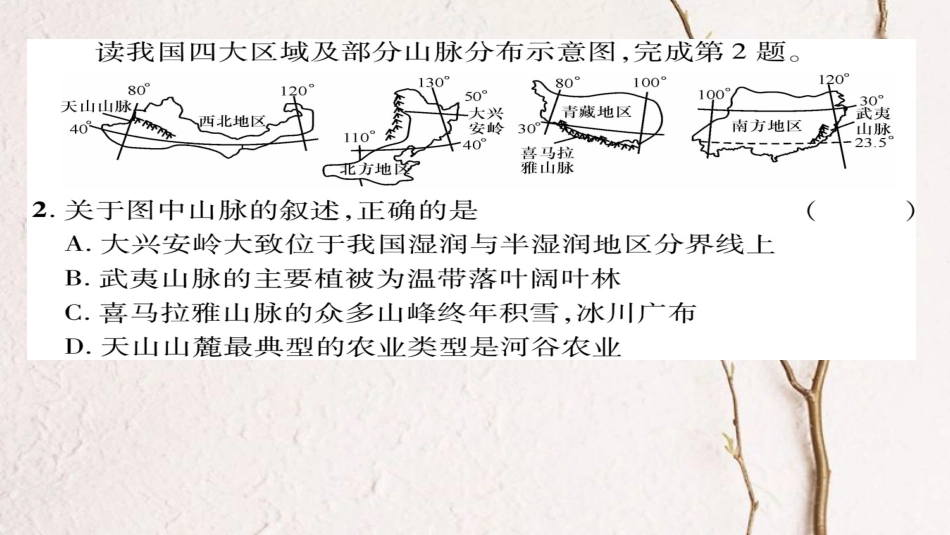 读我国四大区域及部分山脉分布示意图,完成第2题。
80° 120° 天山山脉 西北地区 40°
130° 50° 大兴安岭 40° 110° 北方地区
80° 100° 青藏地区 30° 喜马拉雅山脉
100° 120° 30° 武夷山脉 南方地区 23.5°
2. 关于图中山脉的叙述,正确的是 ( )
A. 大兴安岭大致位于我国湿润与半湿润地区分界线上
B. 武夷山脉的主要植被为温带落叶阔叶林
C. 喜马拉雅山脉的众多山峰终年积雪,冰川广布
D. 天山山麓最典型的农业类型是河谷农业